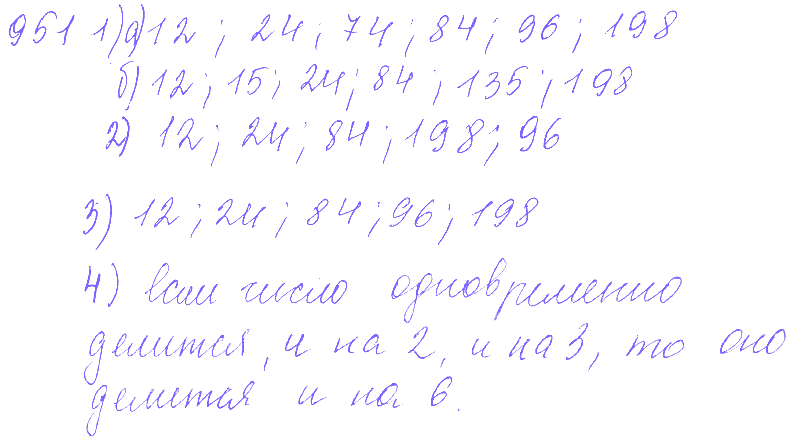 951 1) а) 12 ; 24 ; 74 ; 84 ; 96 ; 198
б) 12 ; 15 ; 24 ; 84 ; 135 ; 198
2) 12 ; 24 ; 84 ; 198 ; 96
3) 12 ; 24 ; 84 ; 96 ; 198
4) если число одновременно
делится, и на 2, и на 3, то оно
делится и на 6.